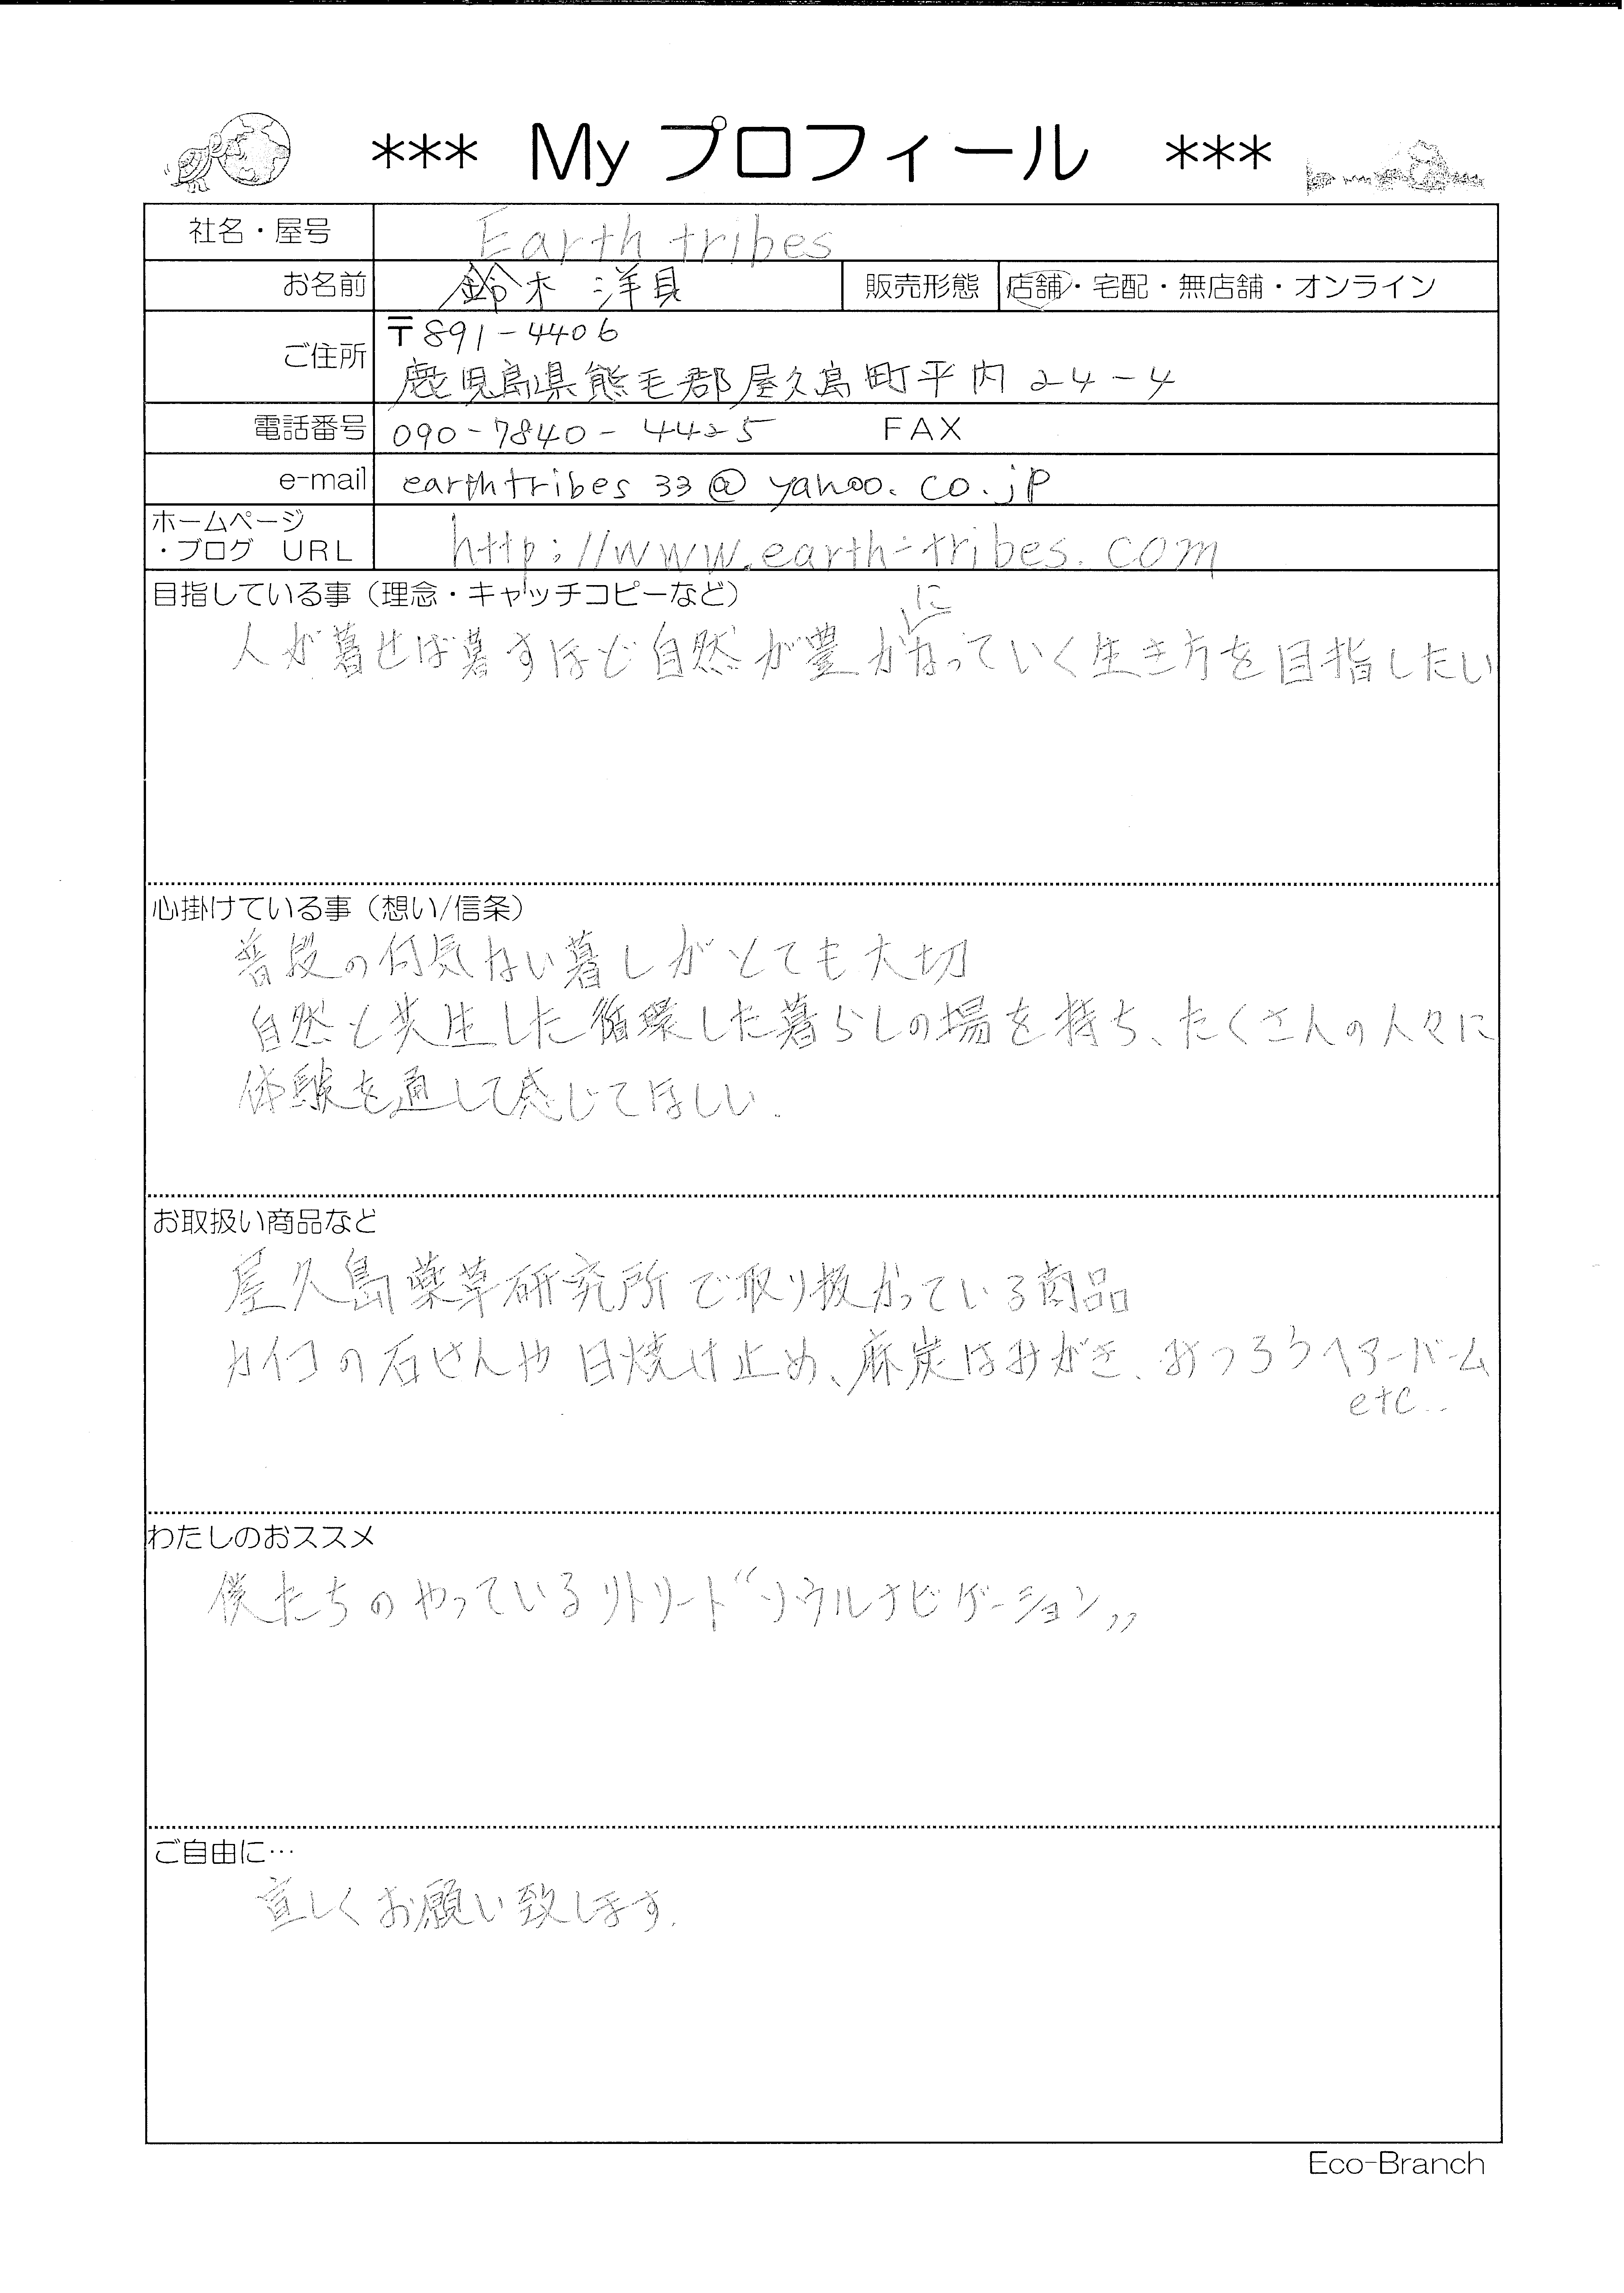 *** My プロフィール ***
社名・屋号 Earth tribes
お名前 鈴木 洋見 販売形態 店舗・宅配・無店舗・オンライン
ご住所 〒891-4406
鹿児島県熊毛郡屋久島町平内24-4
電話番号 090-7840-4425 FAX
e-mail earthtribes33@yahoo.co.jp
ホームページ
・ブログ URL http://www.earth-tribes.com
目指している事（理念・キャッチコピーなど）
人が暮せば暮すほど自然が豊かになっていく生き方を目指したい
心掛けている事（想い/信条）
普段の何気ない暮しがとても大切
自然と共生した循環した暮らしの場を持ち、たくさんの人々に
体験を通して感じてほしい.
お取扱い商品など
屋久島薬草研究所で取り扱かっている商品
カイコの石せんや日焼け止め、麻炭はみがき、みつろうヘアーバーム
etc..
わたしのおススメ
僕たちのやっているリトリート“ソウルナビゲーション”
ご自由に…
宜しくお願い致します.
Eco-Branch